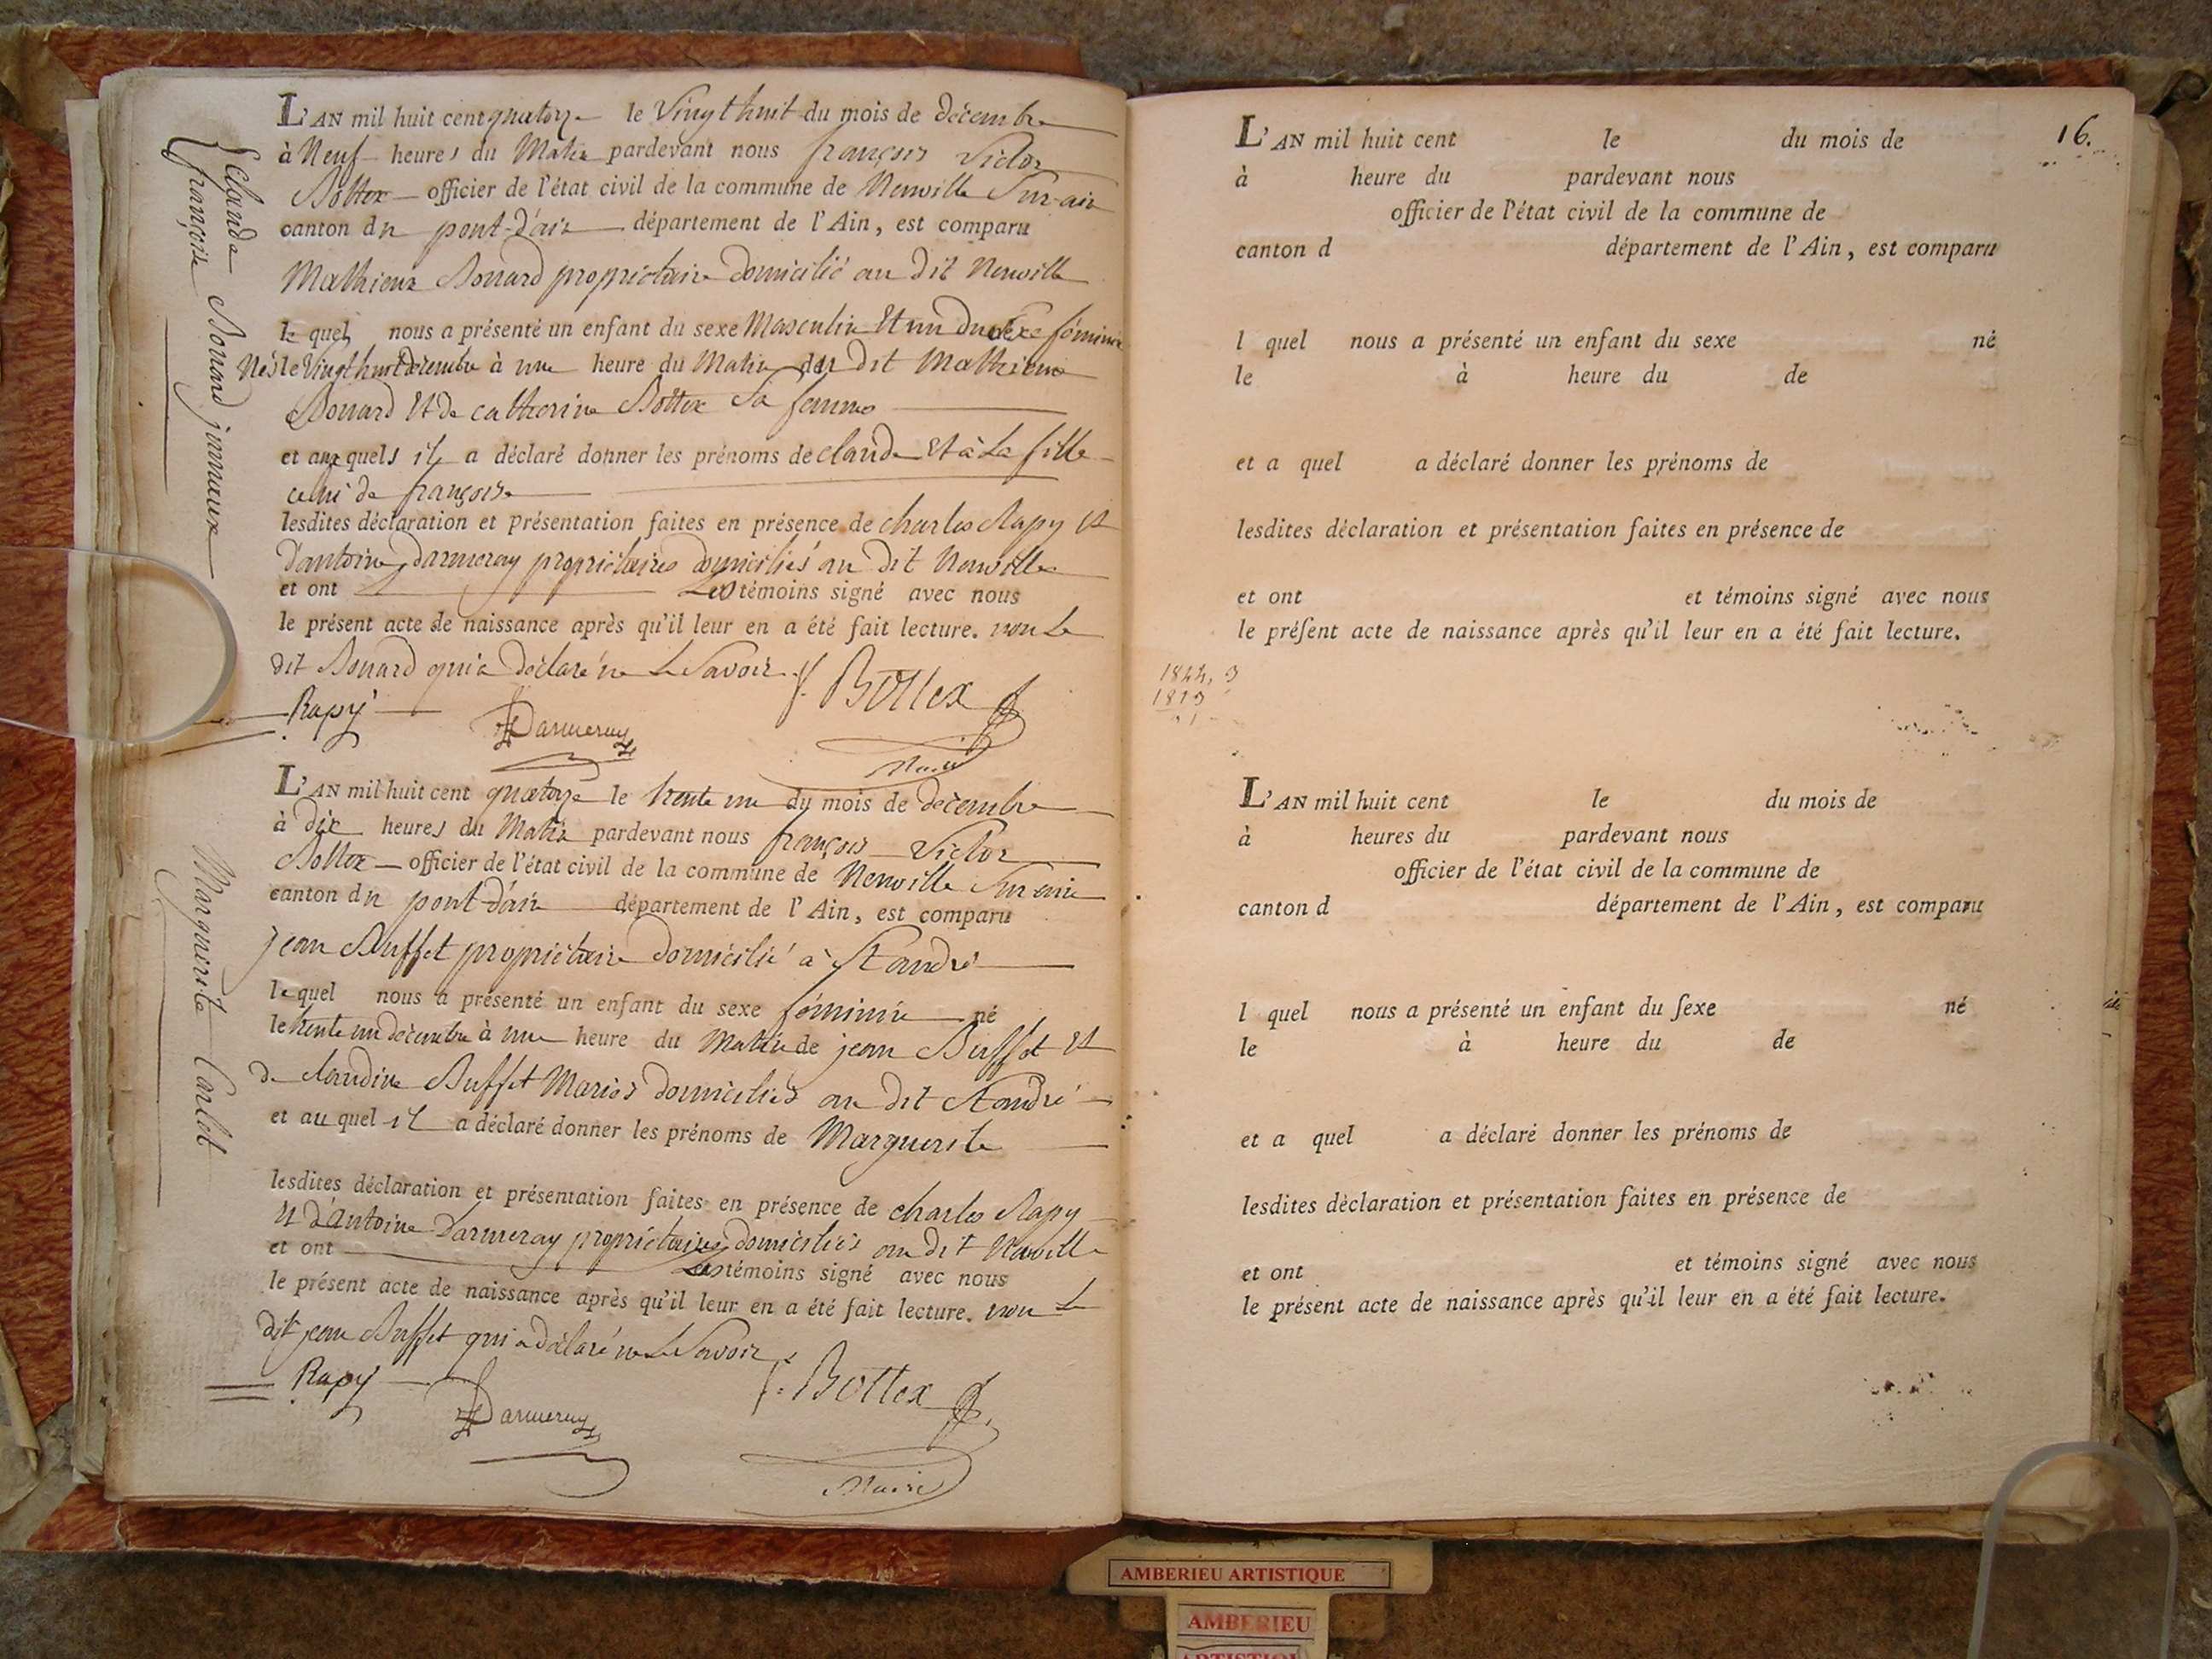 L'AN mil huit cent quatorze le Vingt huit du mois de décembre
à Neuf heures du Matin pardevant nous françois Victor
Bottex officier de l'état civil de la commune de Neuville Sur ain
canton du pont-d'ain département de l'Ain, est comparu
Mathieux Bonard propriétaire domicilié au dit Neuville
lequel nous a présenté un enfant du sexe Masculin Et un du sexe féminin
Nés le Vingt huit décembre à une heure du Matin du dit Mathieux
Bonard Et de catherine Bottex Sa femme
et auxquels il a déclaré donner les prénoms de claude Et à La fille
celui de françoise
lesdites déclaration et présentation faites en présence de charles Rapy Et
D'antoine Darmeray propriétaires domiciliés au dit Neuville
et ont Les témoins signé avec nous
le présent acte de naissance après qu'il leur en a été fait lecture. non Le
dit Bonard qui a déclaré ne Le Savoir
f. Bottex
Rapy
Darmeray
Maire
Claude
françoise Bonard jumeaux
L'AN mil huit cent quatorze le trente un du mois de décembre
à dix heures du Matin pardevant nous françois Victor
Bottex officier de l'état civil de la commune de Neuville Sur ain
canton du pont-d'ain département de l'Ain, est comparu
jean Buffet propriétaire domicilié à St andré
lequel nous a présenté un enfant du sexe féminin né
le trente un décembre à une heure du Matin de jean Buffet Et
de claudine Buffet Mariés domiciliés au dit St andré
et au quel il a déclaré donner les prénoms de Marguerite
lesdites déclaration et présentation faites en présence de charles Rapy
Et d'antoine Darmeray propriétaires domiciliés au dit Neuville
et ont Les témoins signé avec nous
le présent acte de naissance après qu'il leur en a été fait lecture. non Le
dit jean Buffet qui a déclaré ne Le Savoir
f. Bottex
Rapy
Darmeray
Maire
Marguerite
16.
L'AN mil huit cent le du mois de
à heure du pardevant nous
officier de l'état civil de la commune de
canton d département de l'Ain, est comparu
l quel nous a présenté un enfant du sexe né
le à heure du de
et a quel a déclaré donner les prénoms de
lesdites déclaration et présentation faites en présence de
et ont et témoins signé avec nous
le préſent acte de naissance après qu'il leur en a été fait lecture.
L'AN mil huit cent le du mois de
à heures du pardevant nous
officier de l'état civil de la commune de
canton d département de l'Ain, est comparu
l quel nous a présenté un enfant du ſexe né
le à heure du de
et a quel a déclaré donner les prénoms de
lesdites dèclaration et présentation faites en présence de
et ont et témoins signé avec nous
le présent acte de naissance après qu'il leur en a été fait lecture.
AMBERIEU ARTISTIQUE
AMBERIEU
ARTISTIQUE